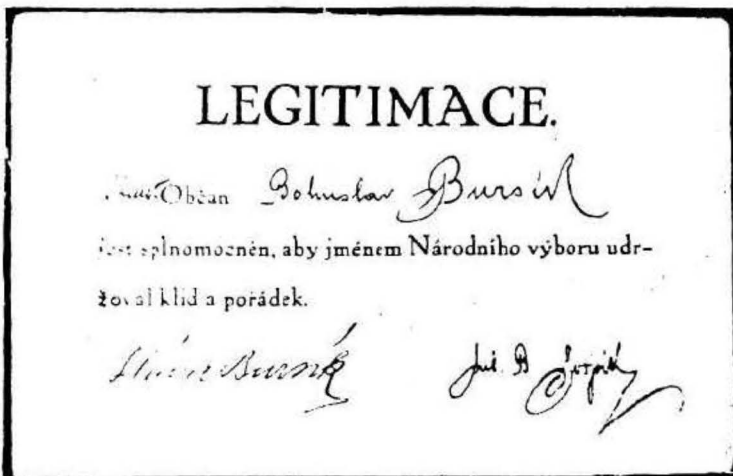 LEGITIMACE.
Občan Bohuslav Bursík
jest splnomocněn, aby jménem Národního výboru udr-
žoval klid a pořádek.